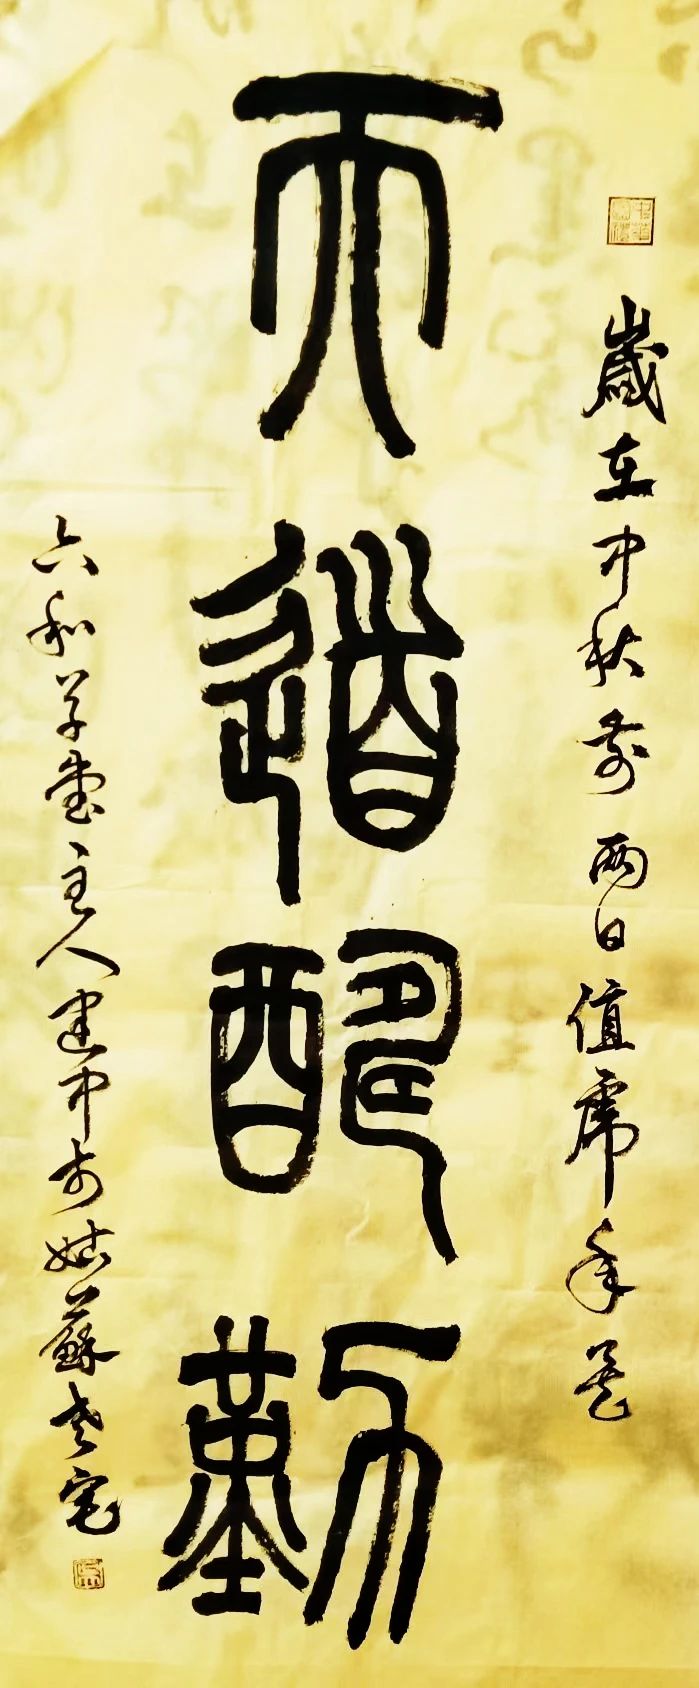 歲在中秋前兩日值虎年
天道酬勤
六和草堂主人建中於姑蘇老宅